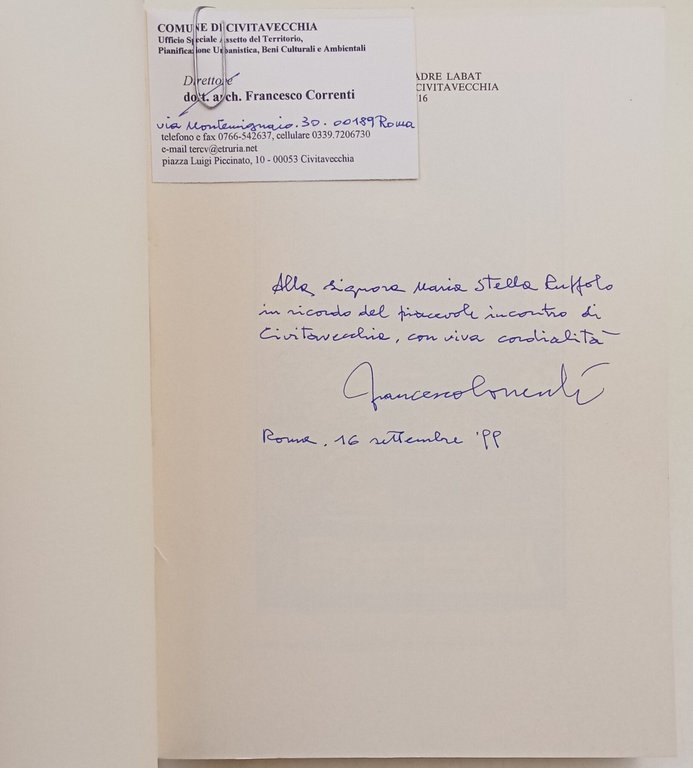 COMUNE DI CIVITAVECCHIA
Ufficio Speciale Assetto del Territorio,
Pianificazione Urbanistica, Beni Culturali e Ambientali
Direttore
dott. arch. Francesco Correnti
via Montemignaio. 30 - 00189 Roma
telefono e fax 0766-542637, cellulare 0339.7206730
e-mail tercv@etruria.net
piazza Luigi Piccinato, 10 - 00053 Civitavecchia
ADRE LABAT
CIVITAVECCHIA
16
Alla signora Maria Stella Ruffolo
in ricordo del piacevole incontro di
Civitavecchia, con viva cordialità
Francesco Correnti
Roma, 16 settembre '99